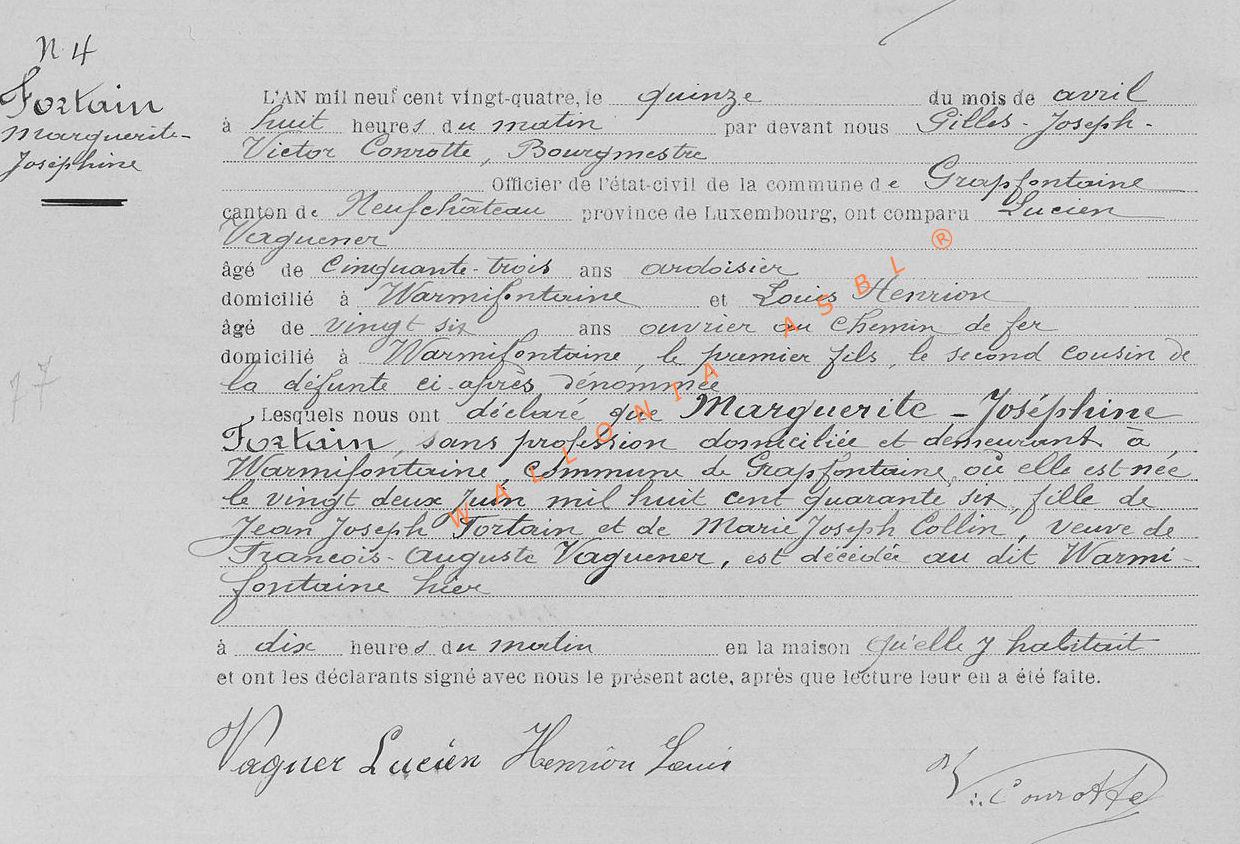 N. 4
Fortain
Marguerite-
Joséphine
L'AN mil neuf cent vingt-quatre, le quinze du mois de avril
à huit heures du matin par devant nous Gilles-Joseph-
Victor Conrotte, Bourgmestre
Officier de l'état-civil de la commune de Grapfontaine
canton de Neufchâteau province de Luxembourg, ont comparu Lucien
Vaguener
âgé de cinquante-trois ans ardoisier
domicilié à Warmifontaine et Louis Henrion
âgé de vingt six ans ouvrier au chemin de fer
domicilié à Warmifontaine, le premier fils, le second cousin de
la défunte ci-après dénommée
Lesquels nous ont déclaré que Marguerite-Joséphine
Fortain, sans profession domiciliée et demeurant à
Warmifontaine, commune de Grapfontaine, où elle est née
le vingt deux juin mil huit cent quarante six, fille de
Jean Joseph Fortain et de Marie Joseph Collin, veuve de
Francois-Auguste Vaguener, est décédée au dit Warmi-
fontaine hier
à dix heures du matin en la maison qu'elle y habitait
et ont les déclarants signé avec nous le présent acte, après que lecture leur en a été faite.
Vagner Lucien Henrion Louis
V. Conrotte
77
WALLONIA ASBL ®